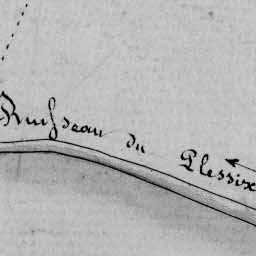 Ruisseau du Plessix